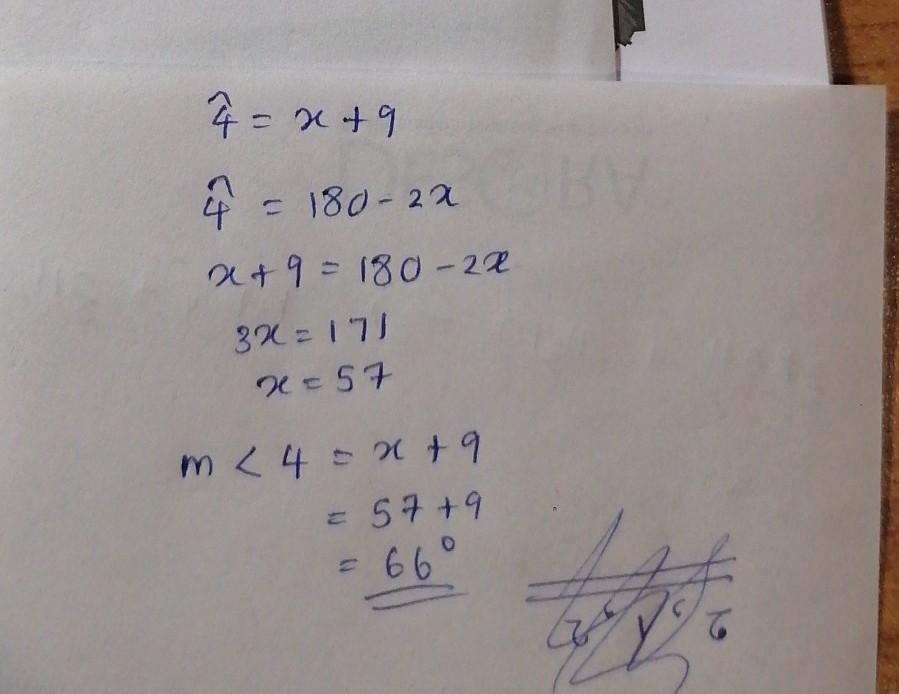 4̂ = x + 9
4̂ = 180 - 2x
x + 9 = 180 - 2x
3x = 171
x = 57
m < 4 = x + 9
= 57 + 9
= 66°